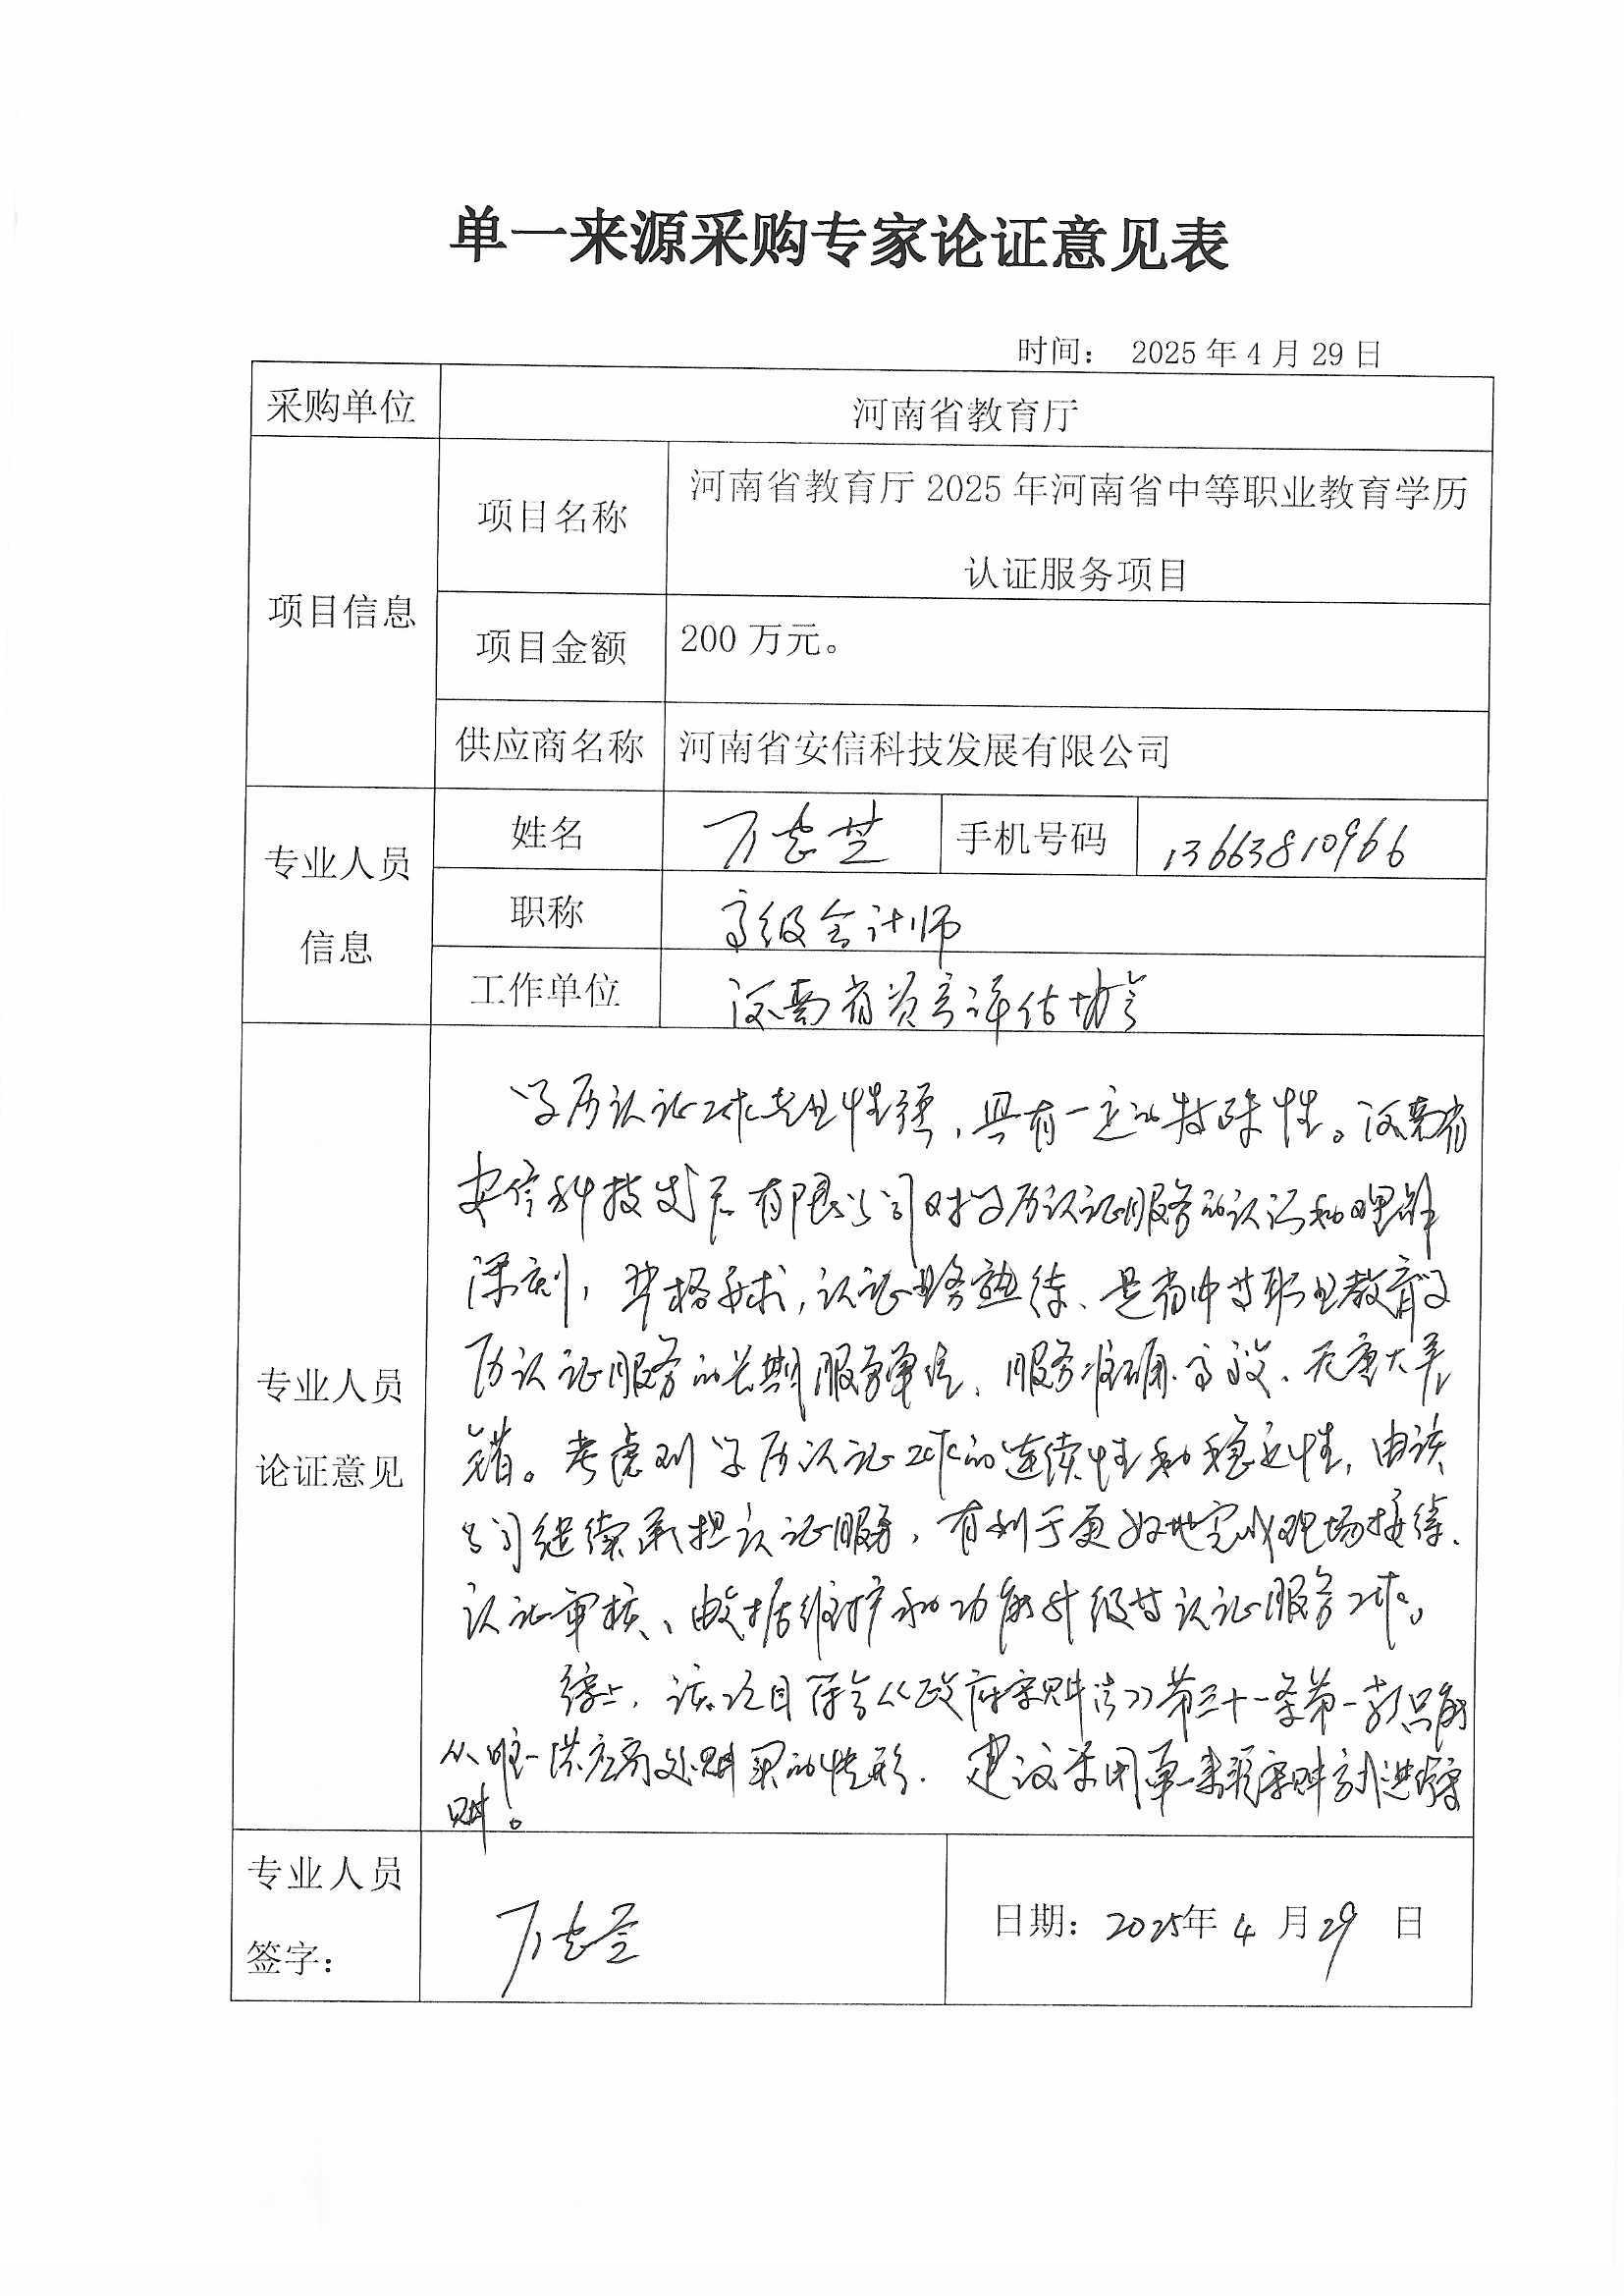 单一来源采购专家论证意见表
时间： 2025 年 4 月 29 日
采购单位 河南省教育厅
项目信息
项目名称
河南省教育厅 2025 年河南省中等职业教育学历
认证服务项目
项目金额 200 万元。
供应商名称 河南省安信科技发展有限公司
专业人员
信息
姓名 手机号码 13663810966
职称 高级会计师
工作单位 河南省资产评估协会
专业人员
论证意见
学历认证工作专业性强，具有一定的特殊性。河南省
安信科技发展有限公司对学历认证服务的认识和理解
深刻，严格要求，认证业务熟练、是省中等职业教育学
历认证服务的长期服务单位、服务准确、高效、无重大差
错。考虑到学历认证工作的连续性和稳定性，由该
公司继续承担认证服务，有利于更好地完成现场接待、
认证审核、数据维护和功能升级等认证服务工作。
综上，该项目符合《政府采购法》第三十一条第一款只能
从唯一供应商处采购的情形，建议采用单一来源采购方式进行采
购。
专业人员
签字：
日期：2025年 4 月 29 日